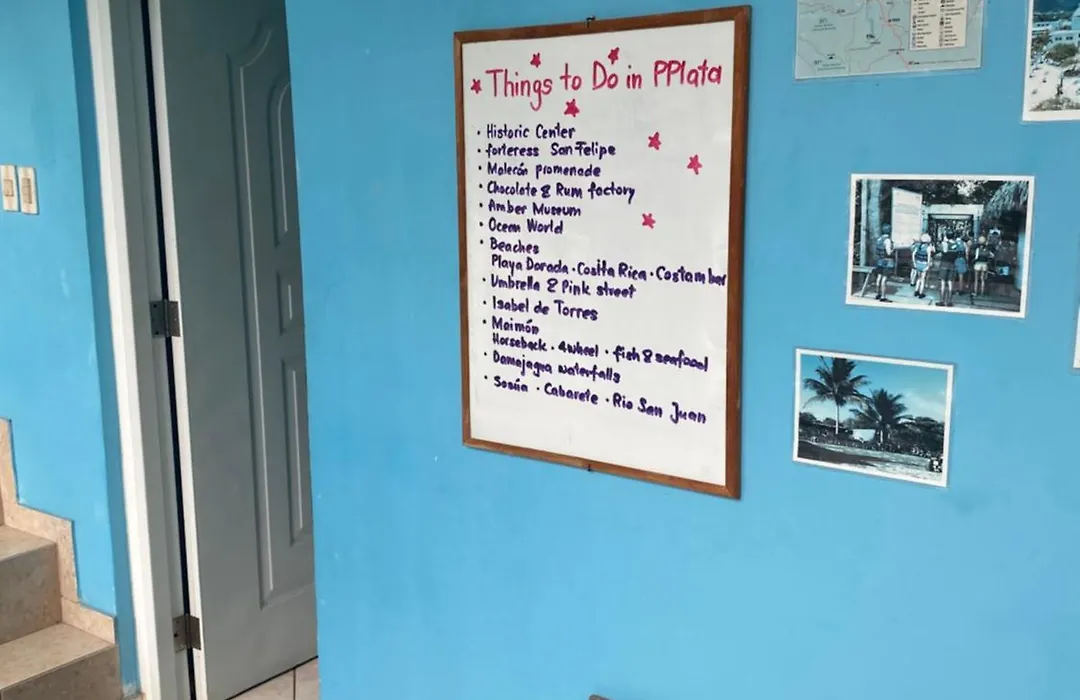 Things to Do in PPlata
• Historic Center
• forteress San Felipe
• Malecón promenade
• Chocolate & Rum factory
• Amber Museum
• Ocean World
• Beaches
Playa Dorada · Costa Rica · Costambar
• Umbrella & Pink street
• Isabel de Torres
• Maimón
Horseback · 4wheel · fish & seafood
• Damajagua waterfalls
• Sosúa · Cabarete · Rio San Juan